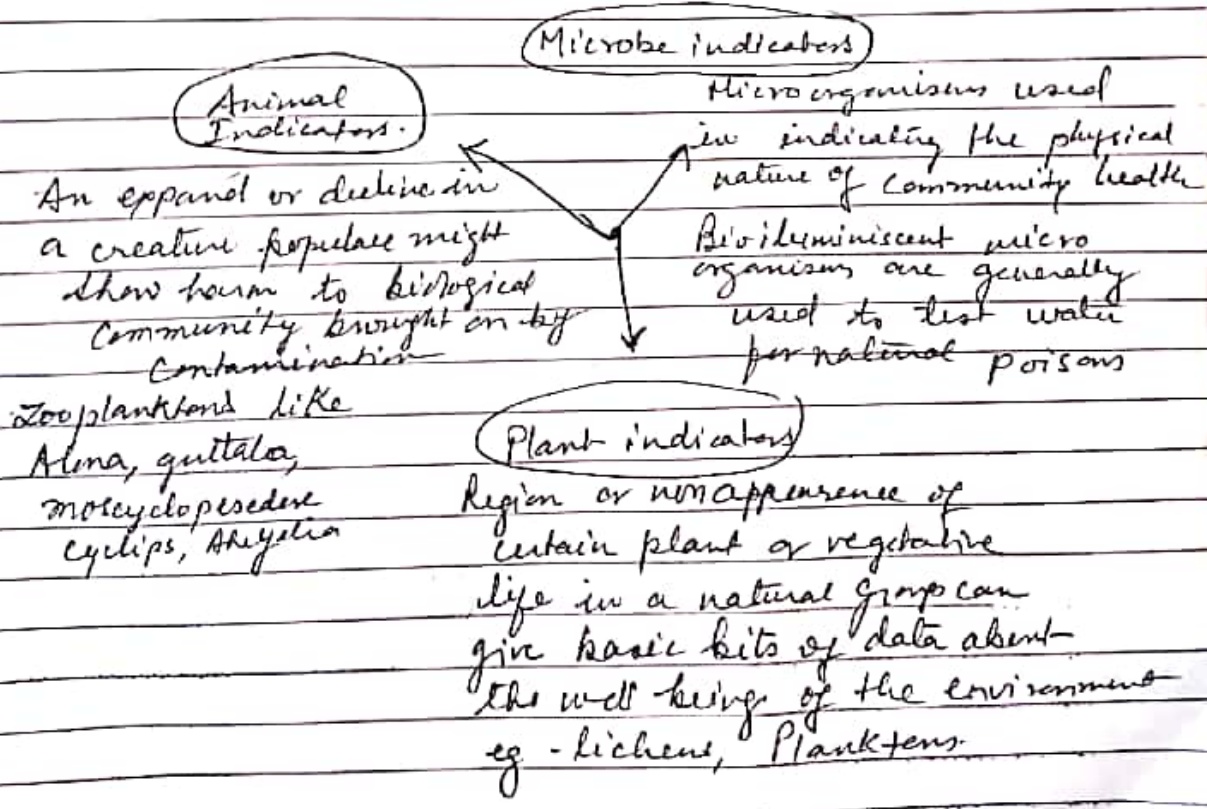 Microbe indicators
Microorganisms used
in indicating the physical
nature of community health
Bioiluminiscent micro
organisms are generally
used to test water
for natural poisons
Animal
Indicators.
An expand or decline in
a creature populace might
show harm to biological
Community brought on by
Contamination
Zooplanktons like
Alona, guttala,
moscyclopesedese
cyclips, Aheyelia
Plant indicators
Region or nonappearence of
certain plant or vegetative
life in a natural Group can
give basic bits of data about
the well beings of the environment
eg - lichens, Planktens.